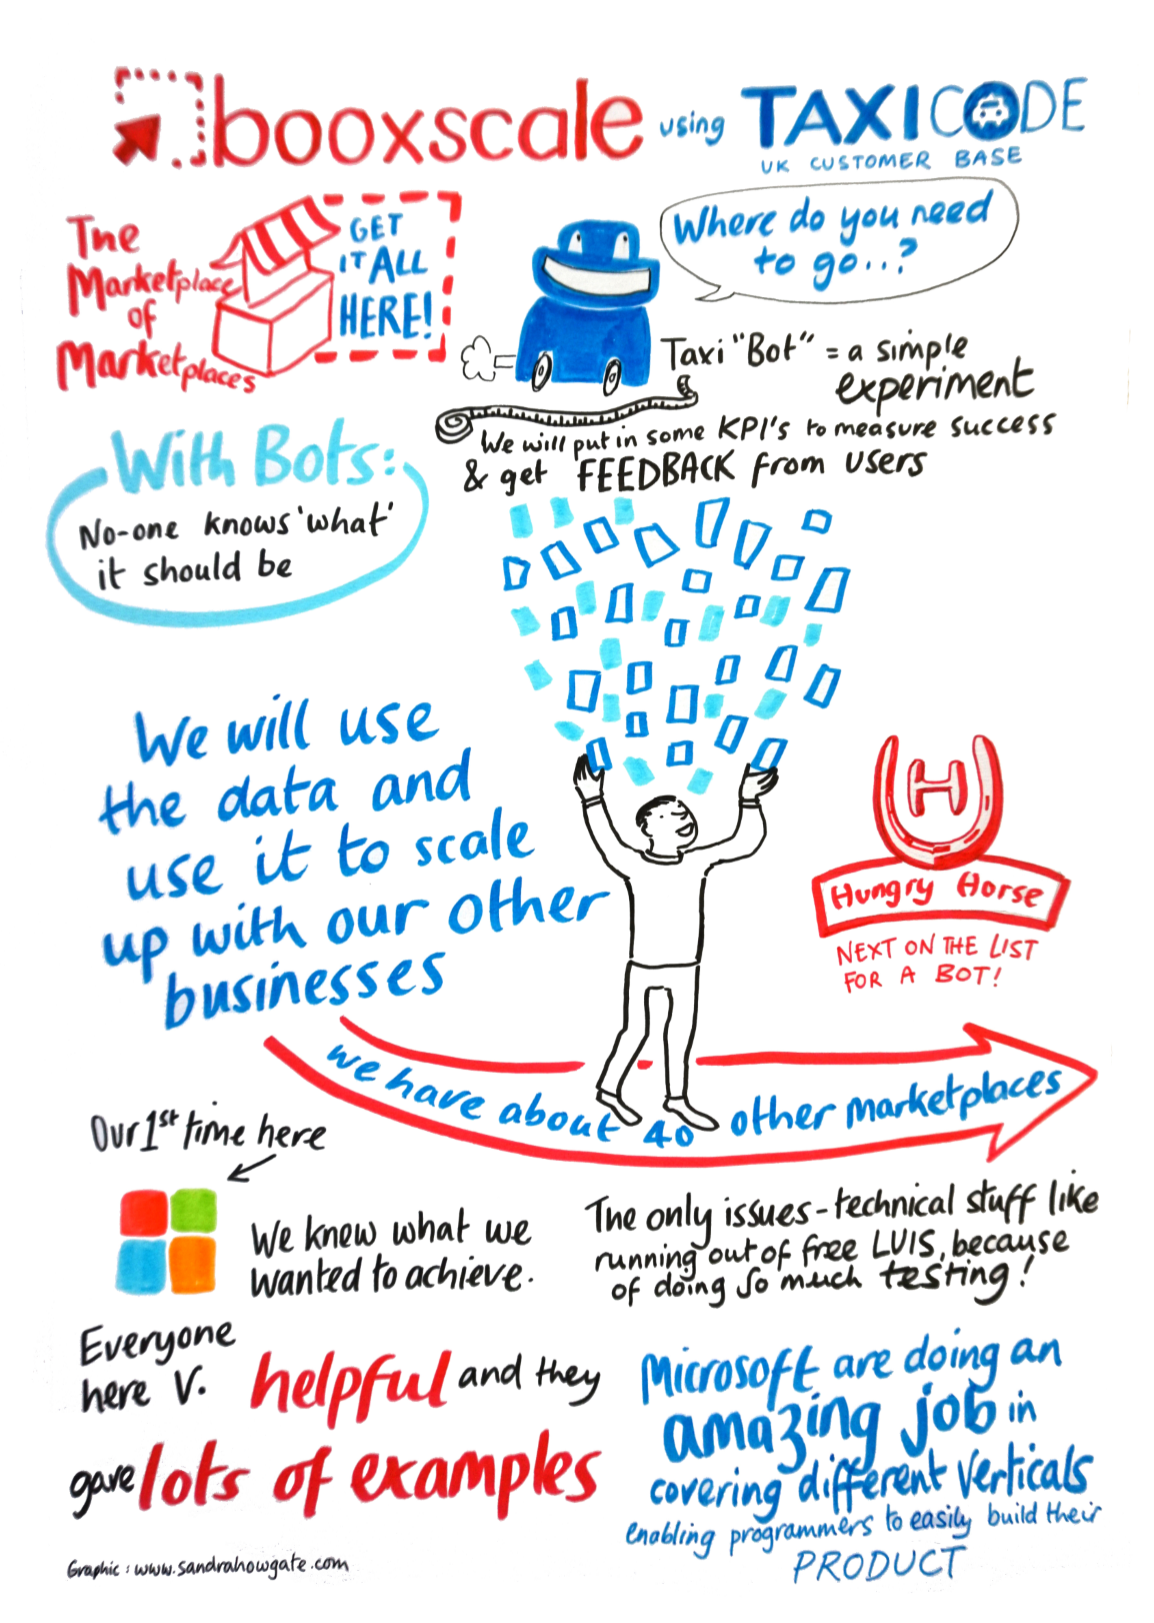 booxscale using TAXICODE
UK CUSTOMER BASE
The
Marketplace
of
Marketplaces
GET
IT ALL
HERE!
Where do you need
to go...?
Taxi "Bot" = a simple
experiment
We will put in some KPI's to measure success
& get FEEDBACK from users
With Bots:
No-one knows 'what'
it should be
We will use
the data and
use it to scale
up with our other
businesses
H
Hungry Horse
NEXT ON THE LIST
FOR A BOT!
we have about 40 other marketplaces
Our 1st time here
We knew what we
wanted to achieve.
The only issues - technical stuff like
running out of free LUIS, because
of doing so much testing!
Everyone
here V. helpful and they
gave lots of examples
Microsoft are doing an
amazing job in
covering different verticals
enabling programmers to easily build their
PRODUCT
Graphic : www.sandrahowgate.com